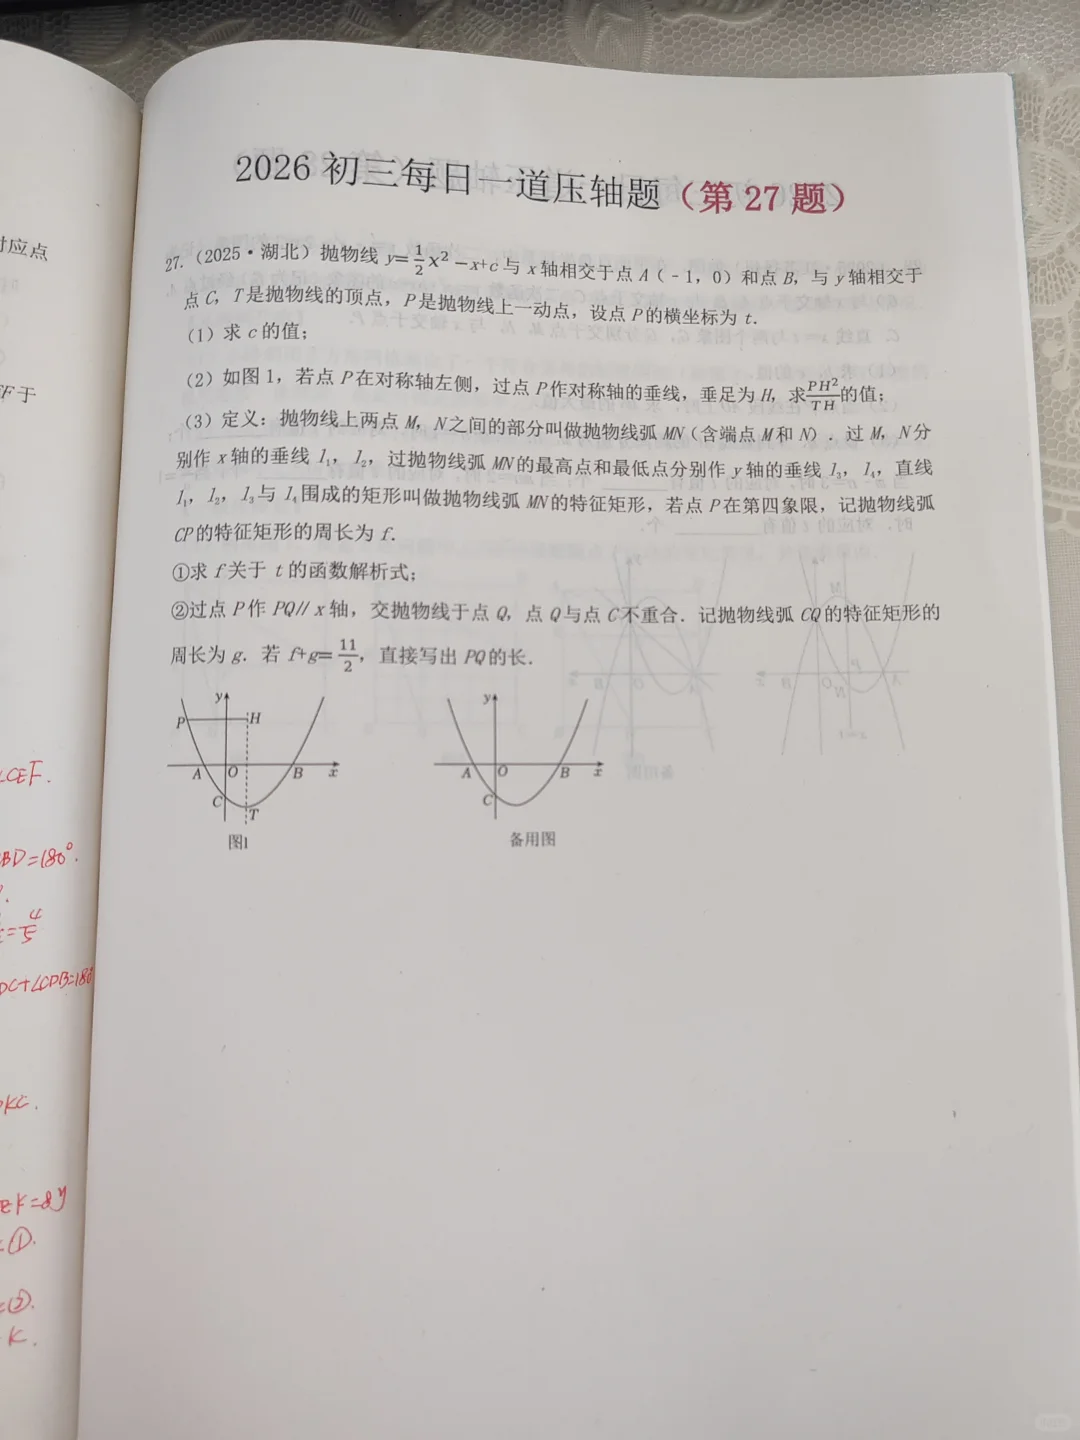 2026 初三每日一道压轴题（第 27 题）
27.（2025·湖北）抛物线 y=1/2x²-x+c 与 x 轴相交于点 A（-1，0）和点 B，与 y 轴相交于
点 C，T 是抛物线的顶点，P 是抛物线上一动点，设点 P 的横坐标为 t．
（1）求 c 的值；
（2）如图 1，若点 P 在对称轴左侧，过点 P 作对称轴的垂线，垂足为 H，求PH²/TH的值；
（3）定义：抛物线上两点 M，N 之间的部分叫做抛物线弧 MN（含端点 M 和 N）．过 M，N 分
别作 x 轴的垂线 l₁，l₂，过抛物线弧 MN 的最高点和最低点分别作 y 轴的垂线 l₃，l₄，直线
l₁，l₂，l₃ 与 l₄ 围成的矩形叫做抛物线弧 MN 的特征矩形，若点 P 在第四象限，记抛物线弧
CP 的特征矩形的周长为 f．
①求 f 关于 t 的函数解析式；
②过点 P 作 PQ// x 轴，交抛物线于点 Q，点 Q 与点 C 不重合．记抛物线弧 CQ 的特征矩形的
周长为 g．若 f+g=11/2，直接写出 PQ 的长．
y
P
H
A
O
B
x
C
T
图1
y
A
O
B
x
C
备用图
对应点
F 于
∠CEF.
BD=180°.
=4/5
DC+∠CDB=180
KC.
EK=8y
①.
②.
K.